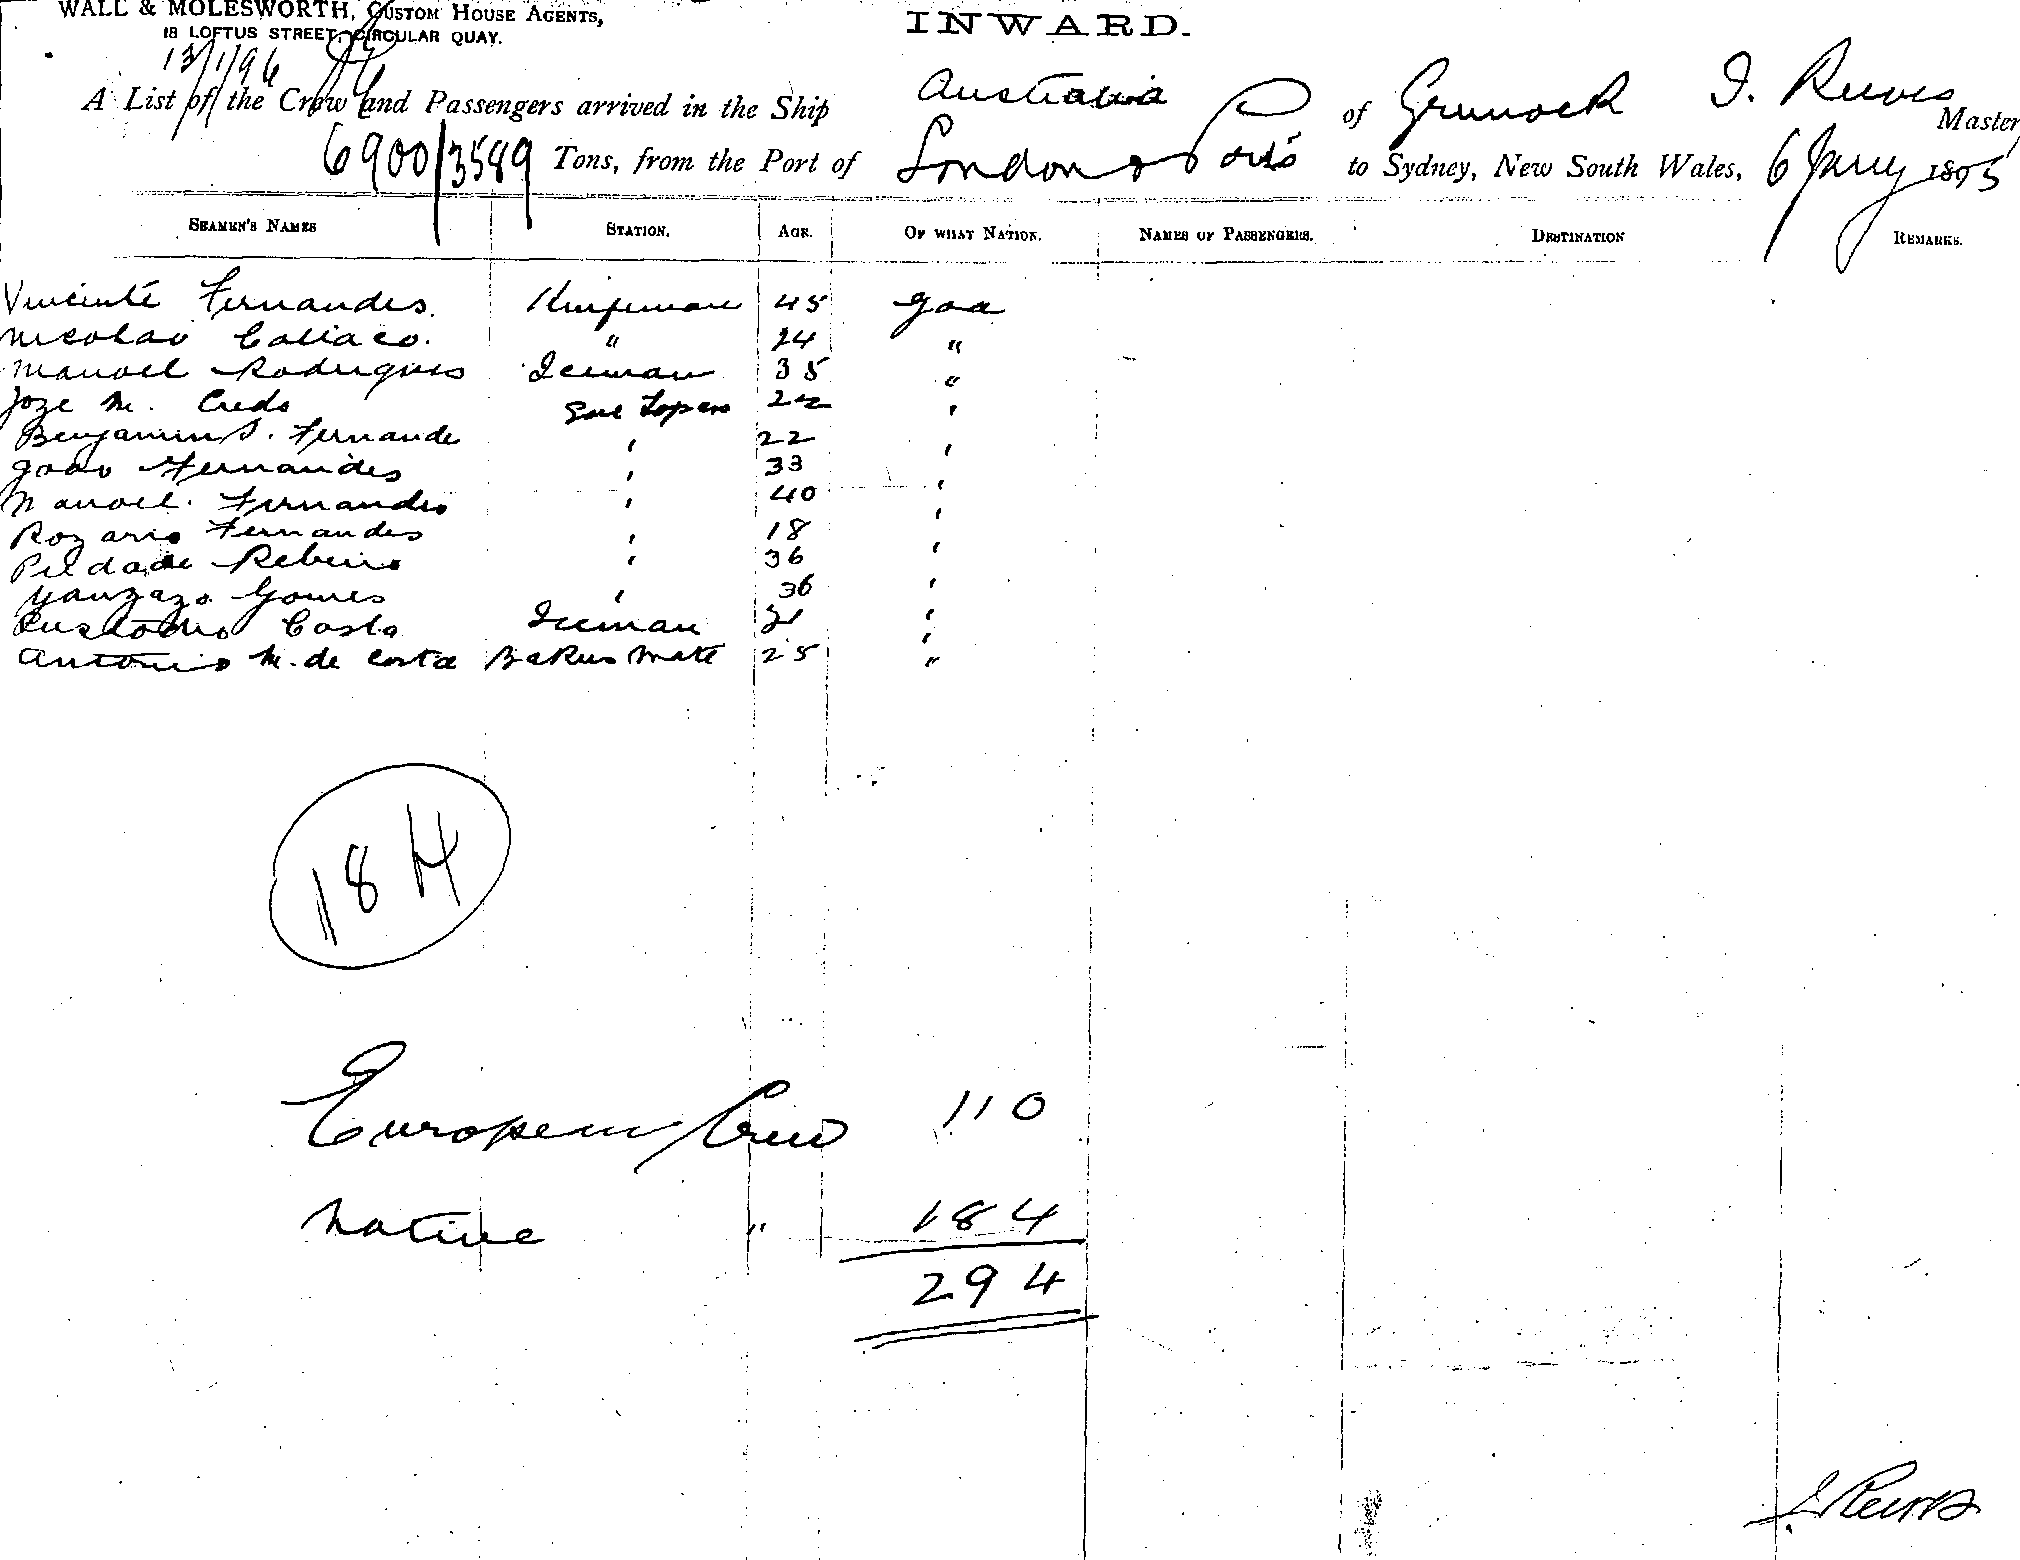 WALL & MOLESWORTH, CUSTOM HOUSE AGENTS,
18 LOFTUS STREET, CIRCULAR QUAY.
INWARD.
13/1/96
A List of the Crew and Passengers arrived in the Ship Australia of Greenock J. Reeves Master
6900/3589 Tons, from the Port of London & Ports to Sydney, New South Wales, 6 Jany 1895
SEAMEN'S NAMES STATION. AGE. OF WHAT NATION. NAMES OF PASSENGERS. DESTINATION REMARKS.
Vincinte Fernandes. 45 Goa
Nicolao Collaco. " 24 "
Manoel Rodrigues Iceman 35 "
Joze M. 22 '
Benjamin S. Fernande ' 22 '
Joao Fernandes ' 33 '
Manoel. Fernandes ' 40 '
Rozario Fernandes ' 18 '
Piedade Rebeiro ' 36 '
Gomes ' 36 '
Custodio Costa Iceman '
Antonio M. de Costa Bakers Mate 25 "
184
European Crew 110
Native " 184
294
J Reeves